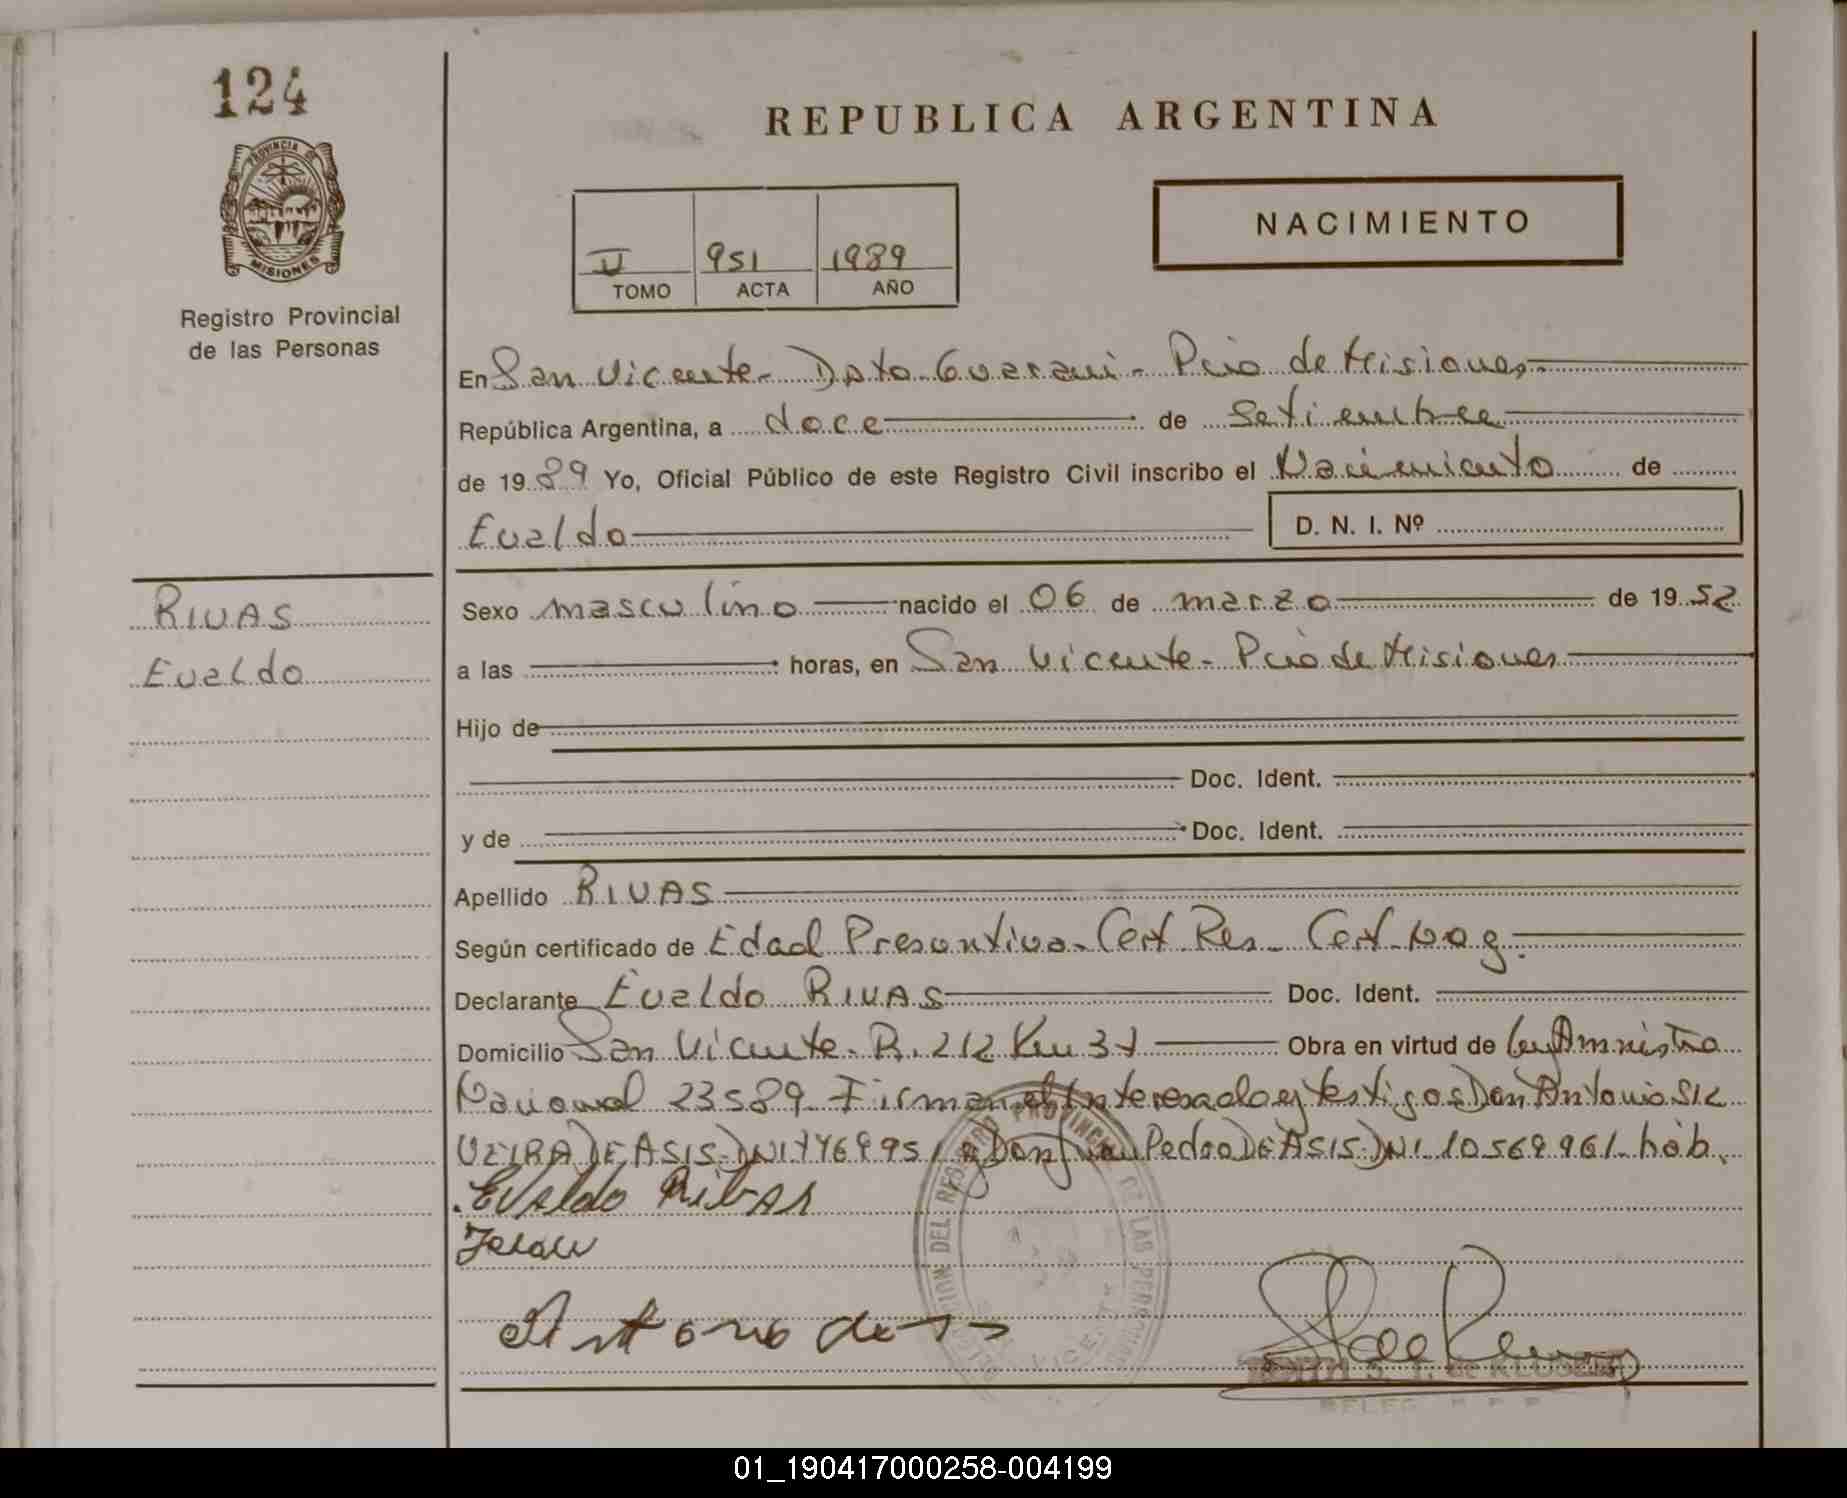 124
REPUBLICA ARGENTINA
PROVINCIA DE
MISIONES
Registro Provincial
de las Personas
II 951 1989
TOMO ACTA AÑO
NACIMIENTO
En San Vicente - Dpto. Guarani - Pcia de Misiones.
República Argentina, a doce de Setiembre
de 1989 Yo, Oficial Público de este Registro Civil inscribo el Nacimiento de
Evaldo D. N. I. Nº
RIVAS
Evaldo
Sexo masculino nacido el 06 de marzo de 1952
a las horas, en San Vicente - Pcia de Misiones
Hijo de
Doc. Ident.
y de Doc. Ident.
Apellido RIVAS
Según certificado de Edad Presuntiva - Cert. Res - Cert. Neg.
Declarante Evaldo RIVAS Doc. Ident.
Domicilio San Vicente - R. 212 Km 37 Obra en virtud de Ley Amnistia
Nacional 23589 - Firman el Interesado y testigos Don Antonio SIL
VEIRA DE ASIS DNI y Don Juan Pedro DE ASIS DNI 10569961 háb.
Evaldo Ribas
Antonio de
DELEGACION DEL REGISTRO PROVINCIAL DE LAS PERSONAS
VICENTE
S. T. de
DELEG. R. P. P.
01_190417000258-004199